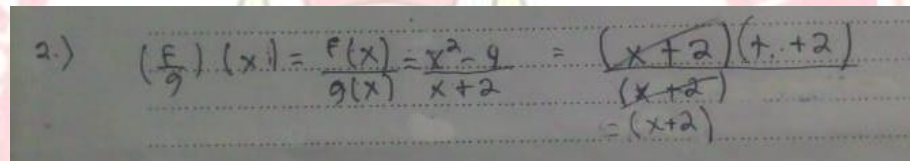 2.) (f/g) (x) = f(x)/g(x) = x² - 4/x + 2 = (x + 2)(+. +2)/(x + 2)
= (x+2)